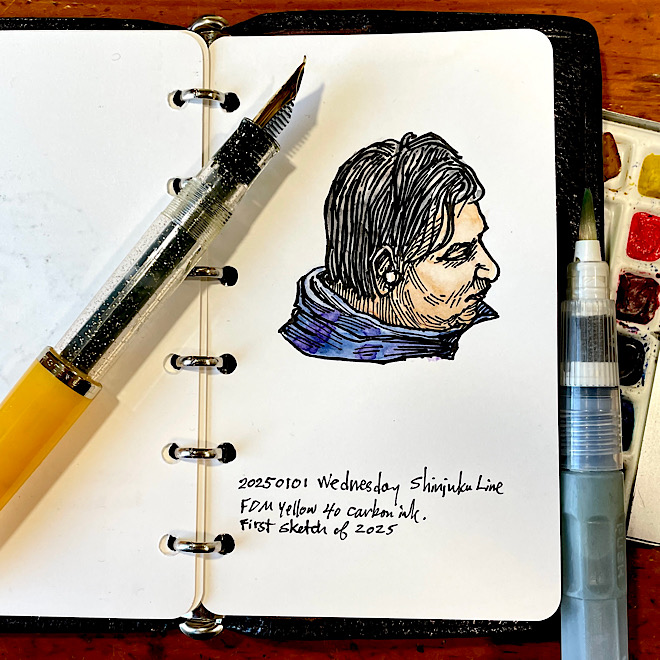 20250101 Wednesday Shinjuku Line
FDM yellow 40 carbon ink.
First sketch of 2025